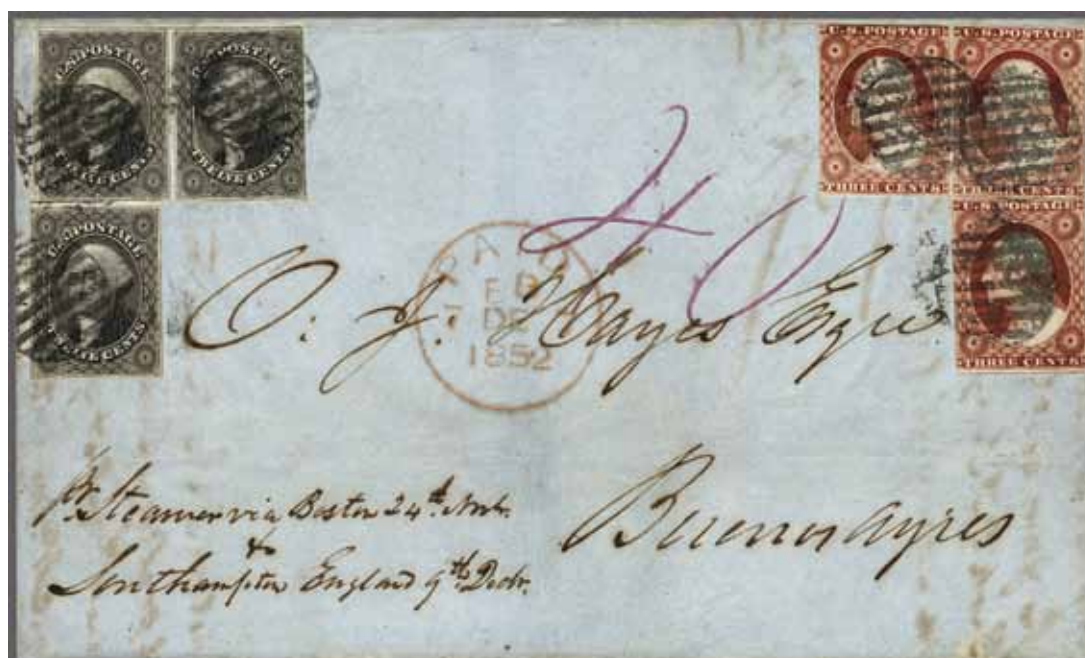 U.S. POSTAGE
TWELVE CENTS
U.S. POSTAGE
TWELVE CENTS
U.S. POSTAGE
THREE CENTS
U.S. POSTAGE
THREE CENTS
U.S. POSTAGE
TWELVE CENTS
U.S. POSTAGE
THREE CENTS
40
PAID
7 DE
1852
O: J. Hayes Esqre
pr. Steamer via Boston 24th Novbr.
&
Southampton England 9th Decbr.
Buenos ayres